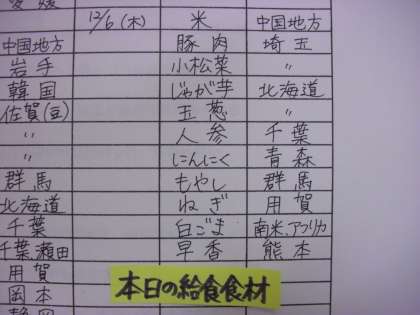 愛媛
12/6(木) 米 中国地方
中国地方 豚肉 埼玉
岩手 小松菜 〃
韓国 じゃが芋 北海道
佐賀(豆) 玉葱 〃
〃 人参 千葉
〃 にんにく 青森
群馬 もやし 群馬
北海道 ねぎ 用賀
千葉 白ごま 南米、アフリカ
千葉、瀬田 早香 熊本
用賀
岡本
静岡
本日の給食食材